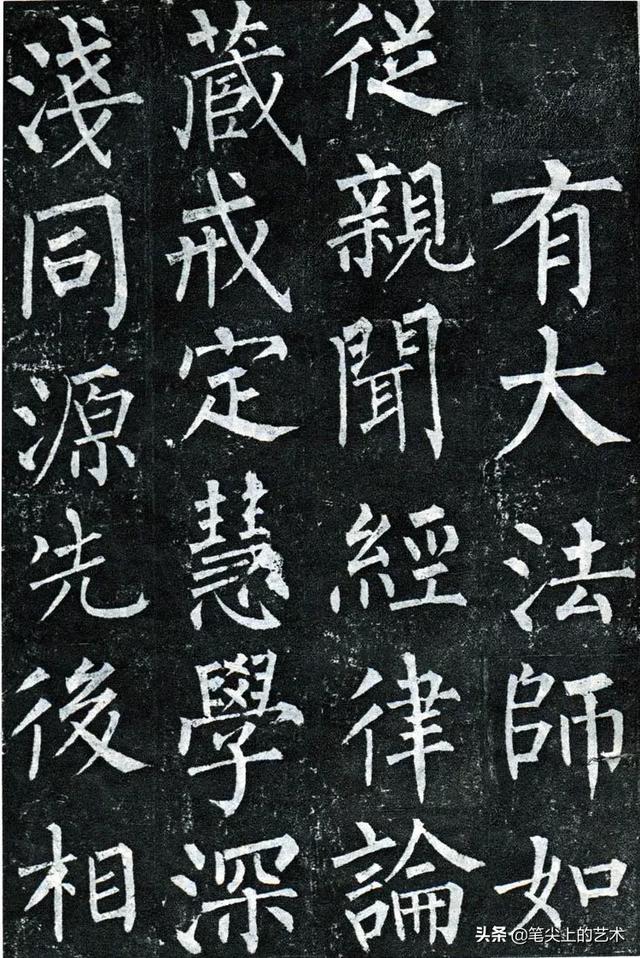 有大法師如
從親聞經律論
藏戒定慧學深
淺同源先後相
头条 @笔尖上的艺术